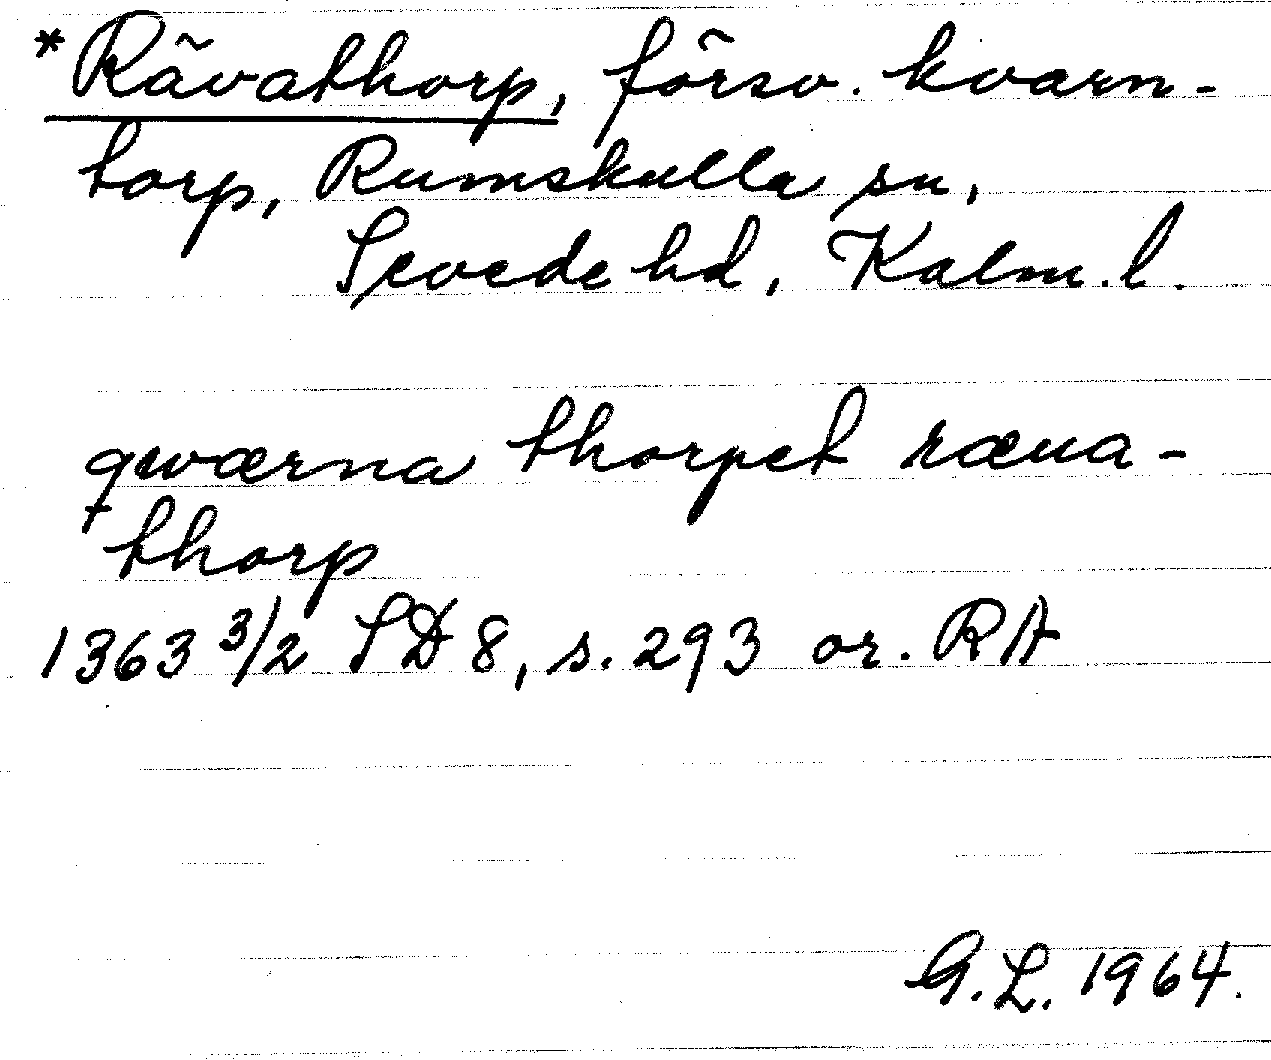 *Rävathorp, försv. kvarn-
torp, Rumskulla sn,
Sevede hd, Kalm. l.
qwærna thorpet ræua-
thorp
1363 3/2 SD 8, s. 293 or. RA
G.L. 1964.